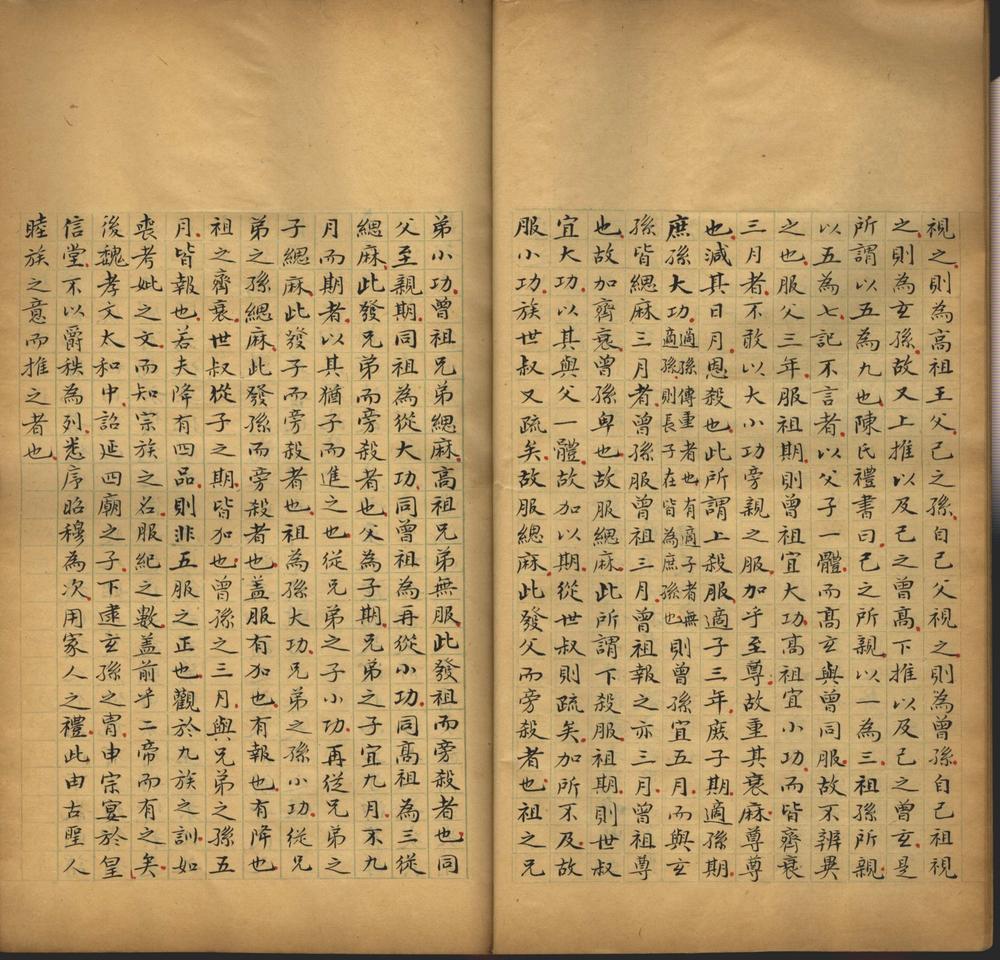 視之則為高祖王父己之孫自己父視之則為曾孫自己祖視
之則為玄孫故又上推以及己之曾髙下推以及己之曾玄是
所謂以五為九也陳氏禮書曰己之所親以一為三祖孫所親
以五為七記不言者以父子一體而髙玄與曾同服故不辨異
之也服父三年服祖期則曾祖宜大功髙祖宜小功而皆齊衰
三月者不敢以大小功旁親之服加乎至尊故重其衰麻尊尊
也減其日月恩殺也此所謂上殺服適子三年庻子期適孫期
庶孫大功適孫傳重者也有適子者無適孫則長子在皆為庶孫也則曾孫宜五月而與玄
孫皆緦麻三月者曾孫服曾祖三月曾祖報之亦三月曾祖尊
也故加齊衰曾孫卑也故服緦麻此所謂下殺服祖期則世叔
宜大功以其與父一體故加以期從世叔則疏矣加所不及故
服小功族世叔又疏矣故服緦麻此發父而旁殺者也祖之兄
弟小功曾祖兄弟緦麻高祖兄弟無服此發祖而旁殺者也同
父至親期同祖為從大功同曾祖為再從小功同髙祖為三從
緦麻此發兄弟而旁殺者也父為子期兄弟之子宜九月不九
月而期者以其猶子而進之也從兄弟之子小功再從兄弟之
子緦麻此發子而旁殺者也祖為孫大功兄弟之孫小功從兄
弟之孫緦麻此發孫而旁殺者也盖服有加也有報也有降也
祖之齊衰世叔從子之期皆加也曾孫之三月與兄弟之孫五
月皆報也若夫降有四品則非五服之正也觀於九族之訓如
喪考妣之文而知宗族之名服紀之數盖前乎二帝而有之矣
後魏孝文太和中詔延四廟之子下逮玄孫之胄申宗宴於皇
信堂不以爵秩為列悉序昭穆為次用家人之禮此由古聖人
睦族之意而推之者也